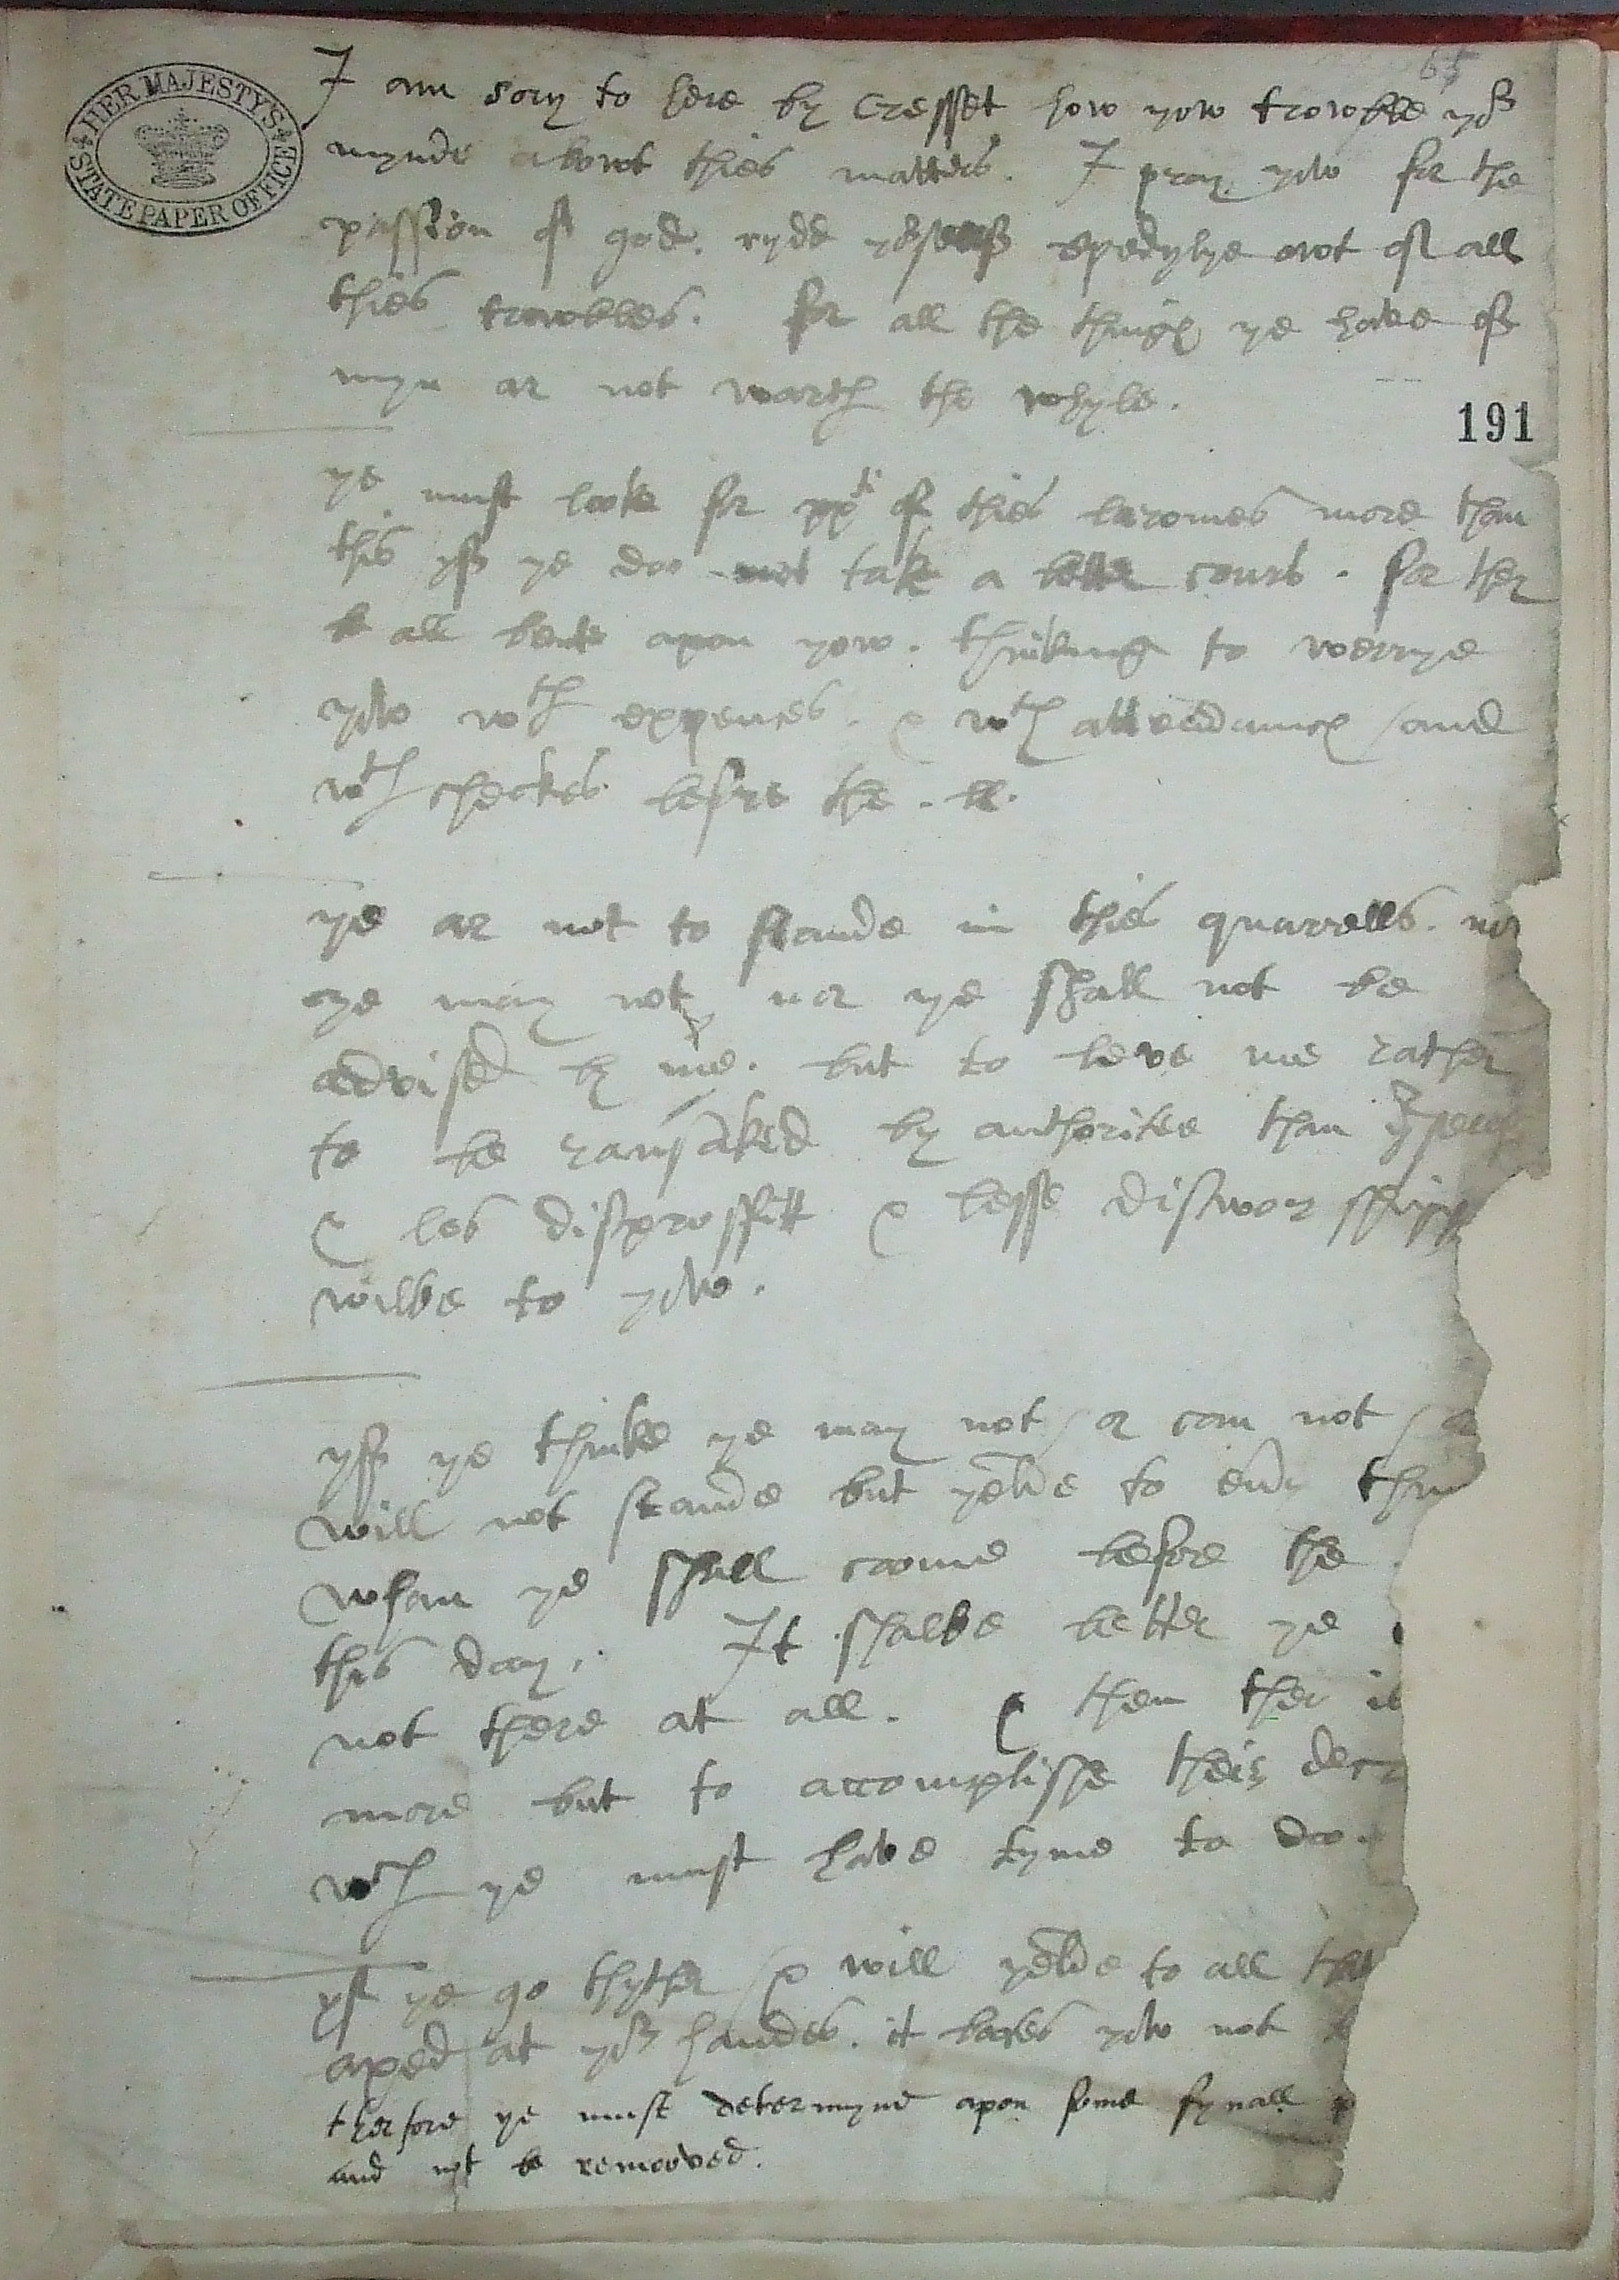 65
HER MAJESTY'S STATE PAPER OFFICE
I am sory to here by Cresset how yow trowble yor
mynde abowt thies matters. I pray yow for the
passion of god. rydd yorselff spedylye owt of all
thies trowbles. for all the things ye have of
myn ar not warth the whyle.
191
ye must looke for xxti of thies laromes more than
this yff ye doo not take a better cours. for ther
be all bente apon yow. thinking to werrye
yow wth expences. & wth attendaunce / and
wth checkes before the . ll.
ye ar not to stande in thies quarrells. nor
ye may not, nor ye shall not be
advised by me. but to leve me rather
to be ransaked by authoritee than
& les disproffitt & lesse disworshipp
wilbe to yow.
yff ye thinke ye may not / or can not /
will not stande but yelde to
whan ye shall coome before the
this day. It shalbe better ye
not there at all. & then ther is
more but to accomplisshe theis
wch ye must have tyme to doo.
yff ye go thyther / & will yelde to all that
axed at yor handes. it bootes yow not
therfore ye must determyne apon some fynall
and not be remooved.